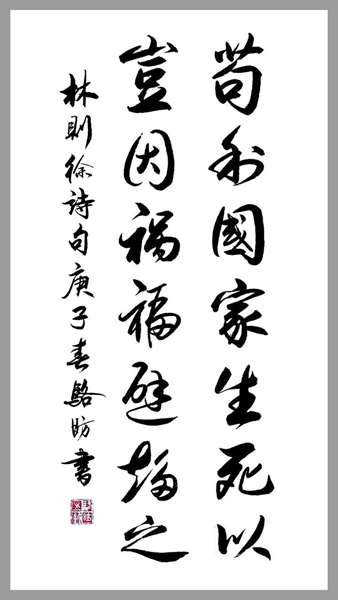 苟利國家生死以
豈因禍福避趨之
林則徐詩句庚子春駱昉書